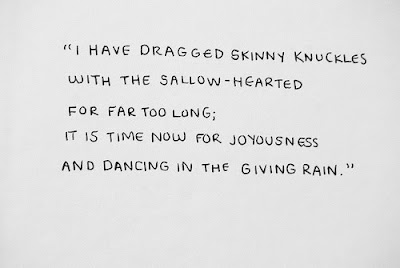 "I HAVE DRAGGED SKINNY KNUCKLES
WITH THE SALLOW-HEARTED
FOR FAR TOO LONG;
IT IS TIME NOW FOR JOYOUSNESS
AND DANCING IN THE GIVING RAIN."